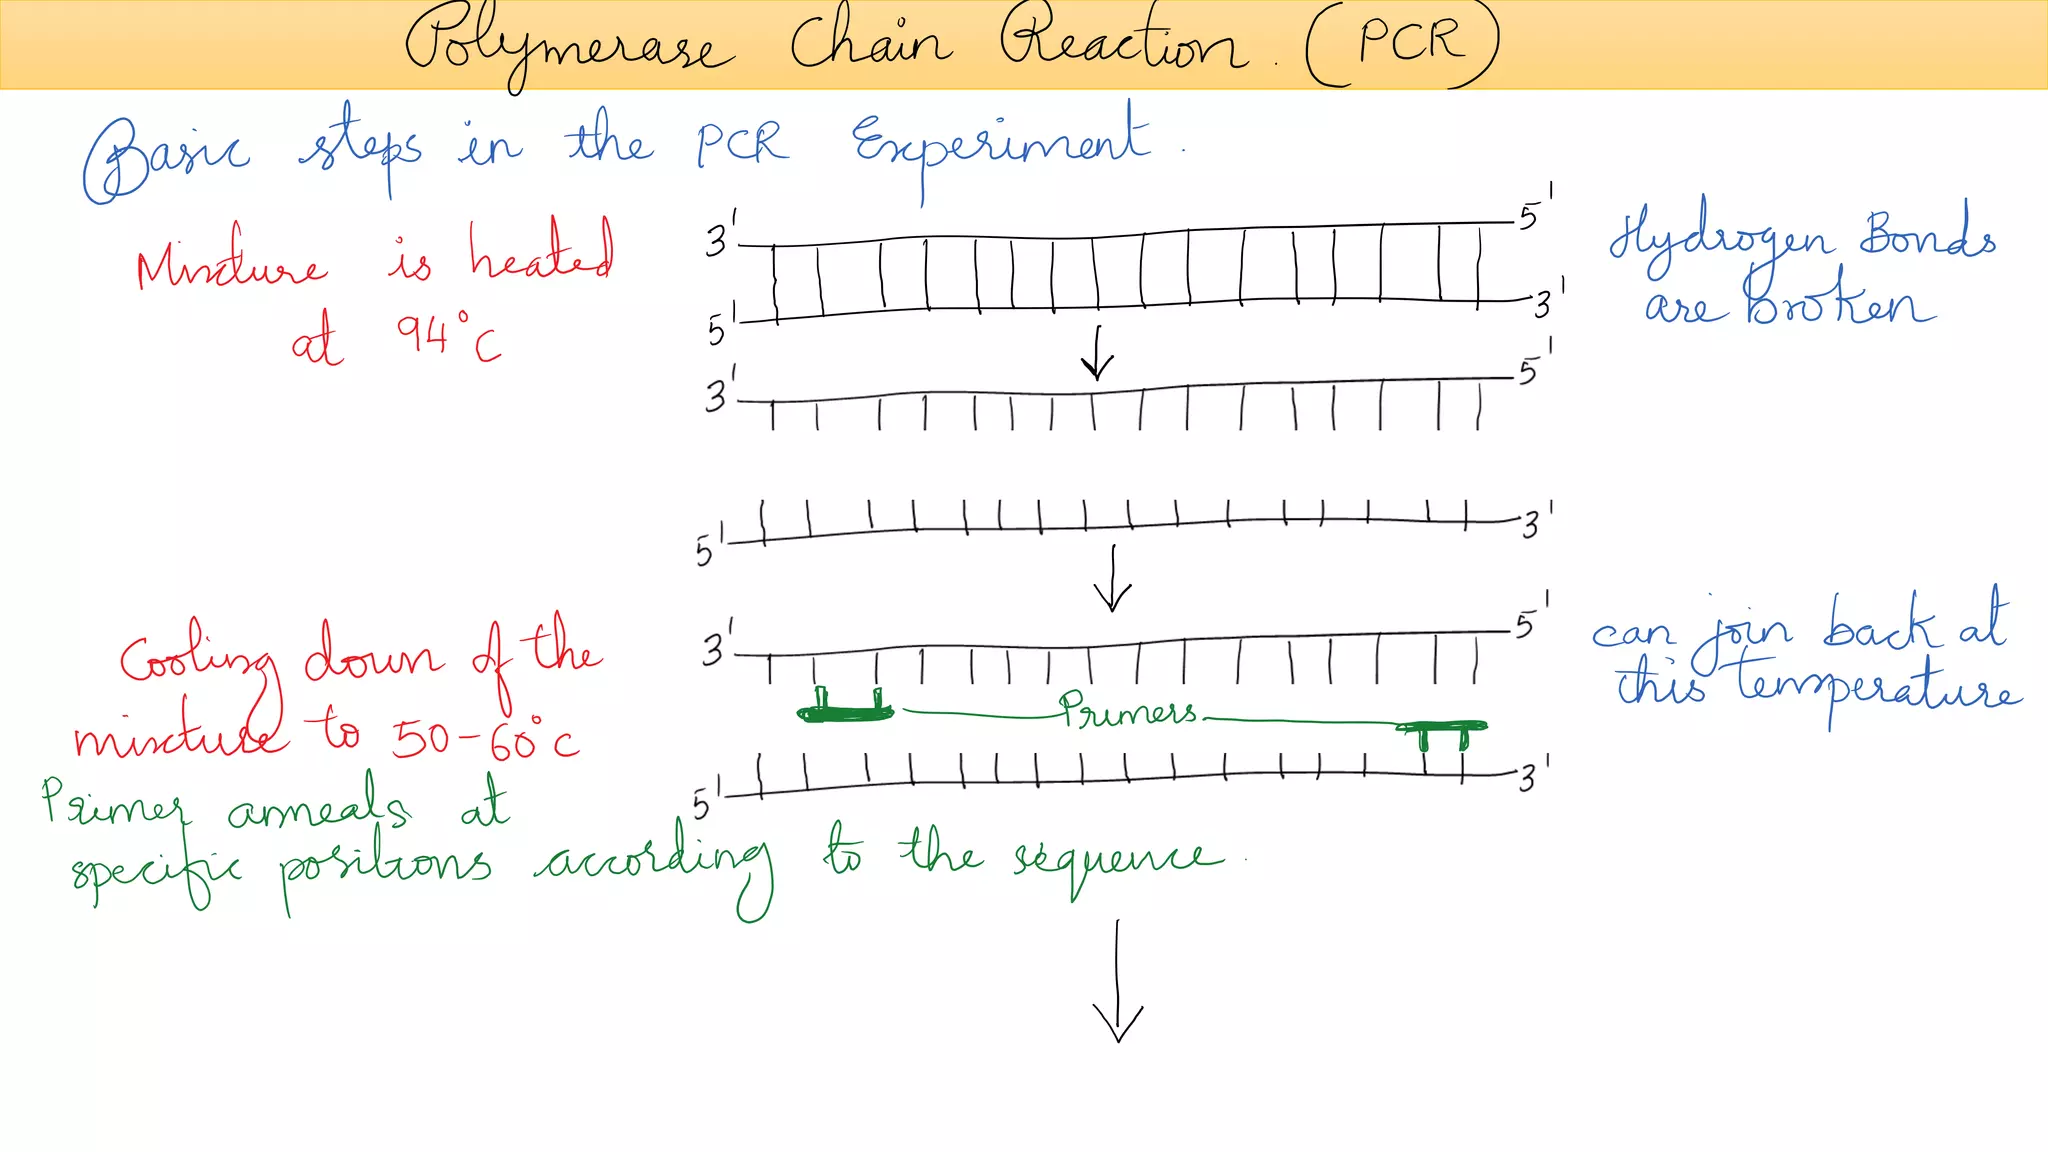 Polymerase Chain Reaction. (PCR)
Basic steps in the PCR Experiment.
Mixture is heated
at 94°C
3' 5'
5' 3'
Hydrogen Bonds
are broken
3' 5'
5' 3'
Cooling down of the
mixture to 50-60°C
3' 5'
Primers
5' 3'
can join back at
this temperature
Primer anneals at
specific positions according to the sequence.